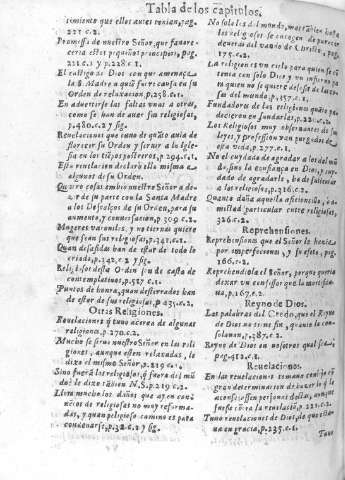 Tabla de los capitulos.
cimiento que ellos antes tenian, pag.
221 c.2.
Promessa de nuestro Señor, que fauore-
ceria estos pequeños principios, pag.
221.c.1 y p.228.c.1.
El castigo de Dios con que amenaça
la S. Madre a quiē fuere causa en su
Orden de relaxacion, p.258.c.1.
En aduertirse las faltas unas a otras,
como se han de auer sus religiosas,
p.480.c.2 y sig.
Reuelaciones de como de quātos auia de
florecer su Orden y seruir a la Igle-
sia en los tiēpos postreros, p.294.c.1.
Esta reuelacion declarò ella misma a
algunos de su Orden.
Quatro cosas embio nuestro Señor a de-
zir de su parte con la Santa Madre
a los Descalços de su Orden, para su
aumento, y conseruacion, p 309 c.2.
Mugeres varoniles, y no tiernas quiere
que sean sus religiosas, p.342.c.2.
Quan desasidas han de estar de todo lo
criado, p.342.c.2 y sig.
Religiosos desta Orden son de casta de
contemplatiuos, p.527 c.1.
Puntos de honra, quan desterrados han
de estar de sus religiosas, p 435.c.2.
Otras Religiones.
Reuelaciones q̃ tuuo acerca de algunas
religiones, p.270.c.2.
Mucho se sirue nuestro Señor en las reli
giones, aunque esten relaxadas, le
dixo el mismo Señor, p.219 c.1.
Sino fuera los religiosos, q̃ fuera del mū
do? le dixo tābien N.S. p.219 c.2.
Llora mucho los daños que ay en con-
uentos de religiosas no muy reforma-
das, y quan peligroso camino es para
condenarse, p.32.c.2 y sig.
No solo los del mundo, mas tābien los
religiosos se encogen de parecer
de veras del vando de Christo, pag.
175.c.2.
La religion es vn cielo para quien se con
tenta con solo Dios y vn infierno pa
ra quien no se quiere desasir de las co-
sas del mundo, p.357.c.1.
Fundadores de las religiones quāto pa-
decieron en fundarlas, p.221.c.1.
Los Religiosos muy obseruantes de sus
leyes, y profession van purgados de
opa vicion, p.177.c.2.
No el cuydado de agradar a los del mū-
do, sino la confiança en Dios, y cuyda
do de agradarle, ha de sustentar
a las religiosas, p.316.c.2.
Quanto daña aquella aficioncilla, o a-
mistad particular entre religiosos,
326.c.2.
Reprehensiones.
Reprehensiones que el Señor le hazia
por imperfecciones, y su efeto, pag.
166.c.2.
Reprehendiola el Señor, porque queria
dexar vn confessor que la mortifica-
ua, p.167.c.2.
Reyno de Dios.
Las palabras del Credo, que el Reyno
de Dios no tiene fin, quanto la con-
solauan, p.387.c.2.
Reyno de Dios en nosotros qual sea,
pag.412.c.1.
Reuelaciones.
En las reuelaciones tomaua casi siempre
gran determinacion de hazer lo q̃ la
aconsejassen personas doctas, aunque
fuesse cōtra la reuelaciō, p.221.c.2.
Tuuo reuelaciones de Dios, de que esta-
ua en gracia, p.235.c.1.
Tuuo